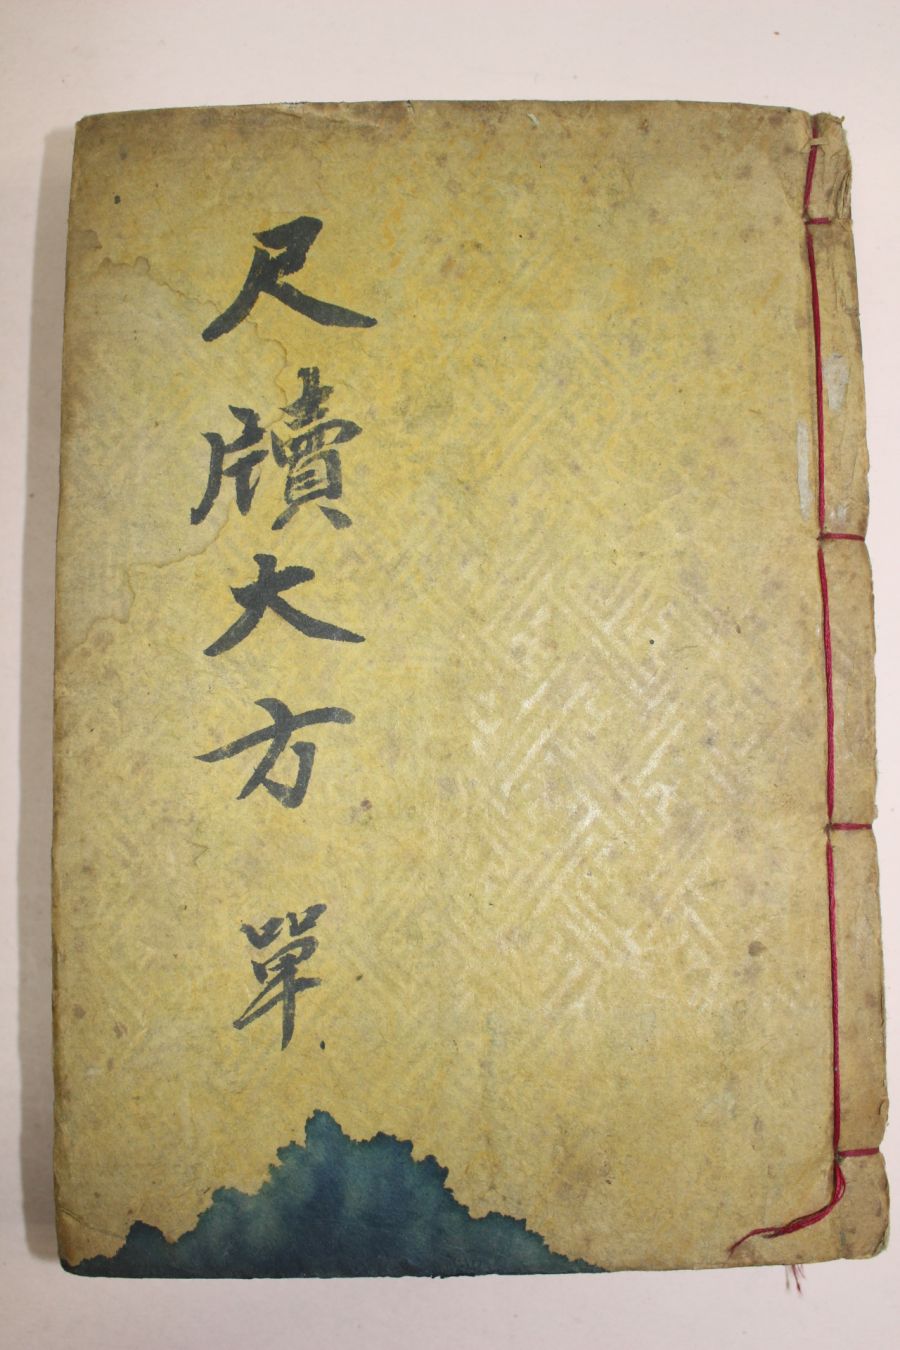 尺牘大方 單